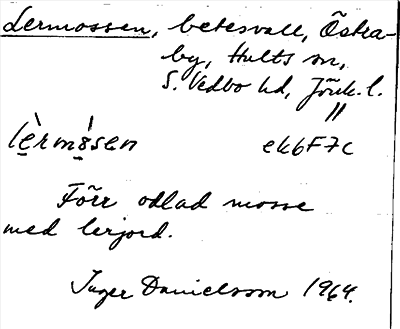 Lermossen, betesvall, Östra-
by, Hults sn,
S. Vedbo hd, Jönk. l.
"
lè̤rmå̤̀sen ek6F7c
Förr odlad mosse
med lerjord.
Inger Danielsson 1964.